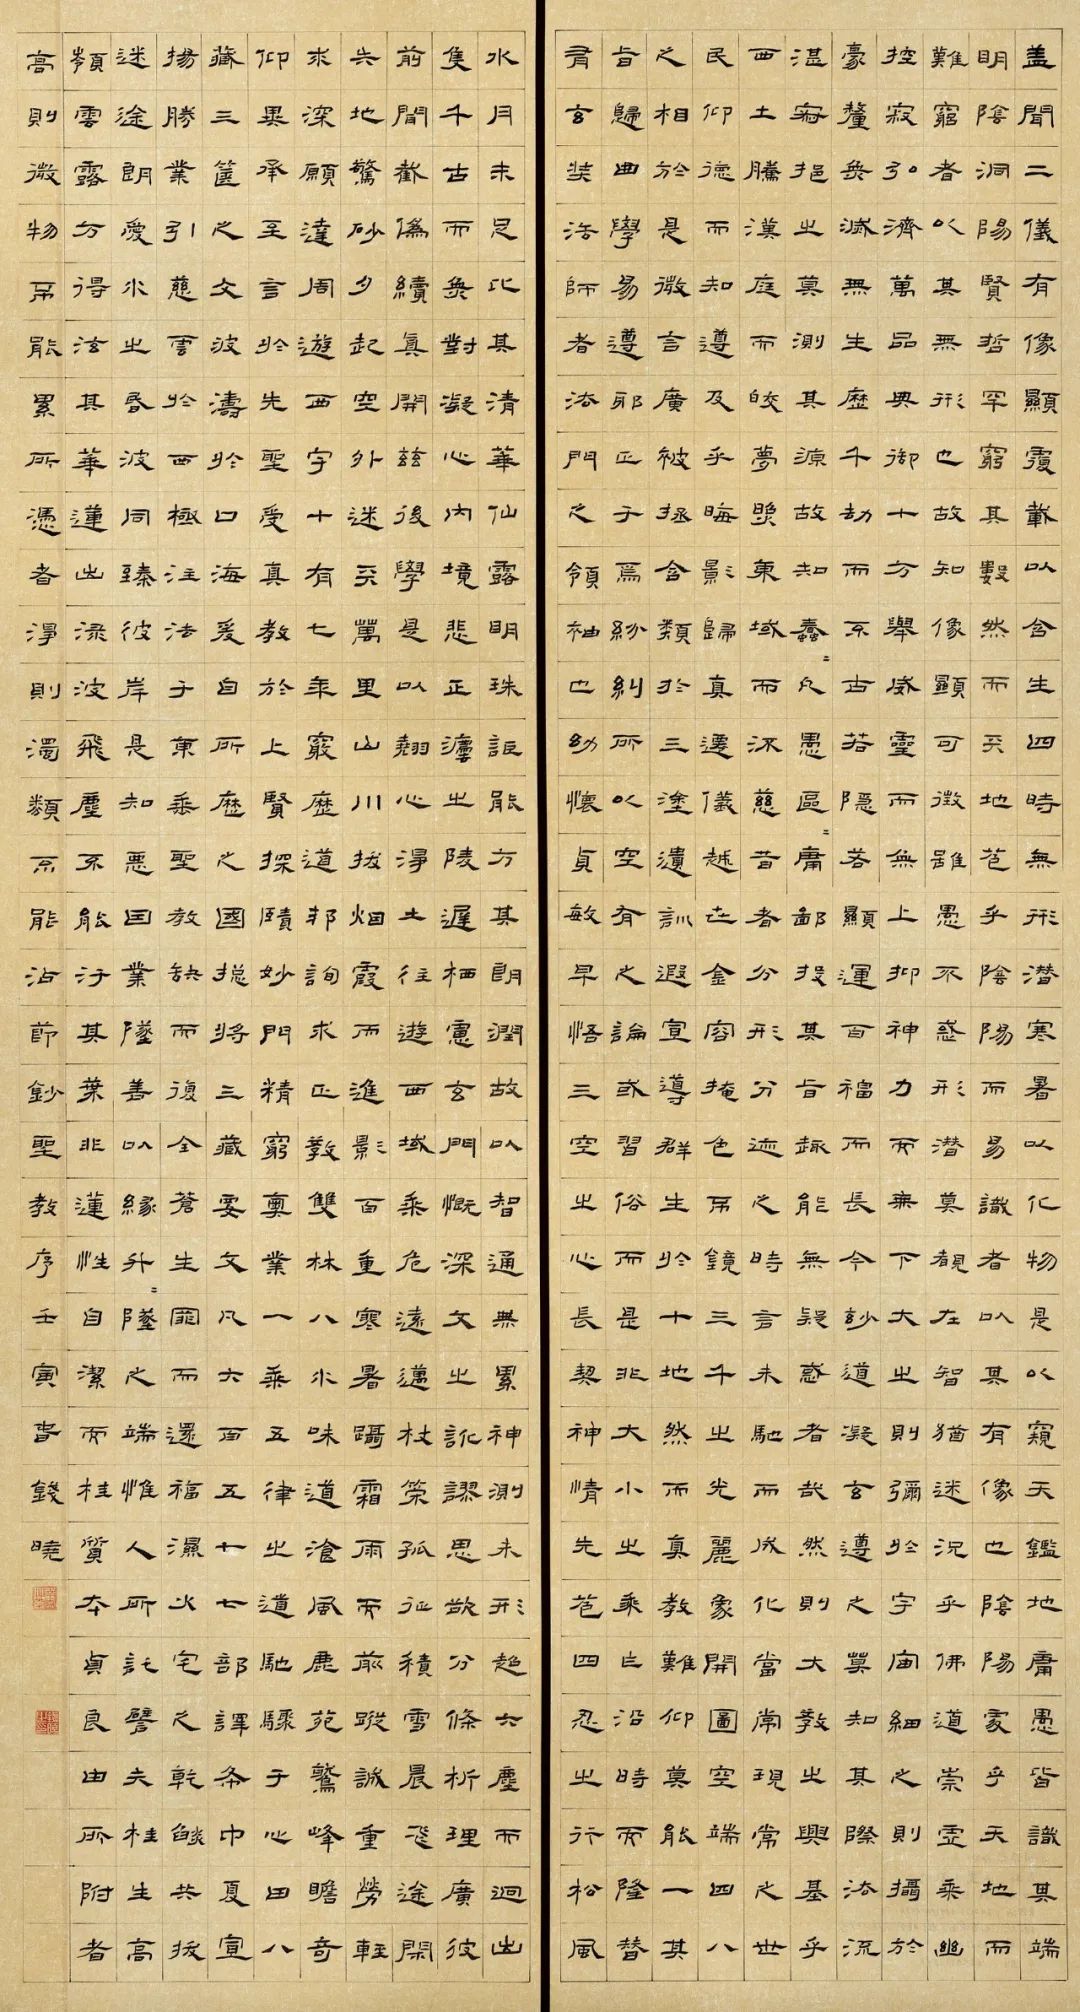 盖聞二儀有像顯覆載以含生四時無形潜寒暑以化物是以窺天鑑地庸愚皆識其端
明陰洞陽賢哲罕窮其數然而天地苞乎陰陽而易識者以其有像也陰陽處乎天地而
難窮者以其無形也故知像顯可徵雖愚不惑形潜莫覩在智猶迷況乎佛道崇虛乘幽
控寂弘濟萬品典御十方舉威靈而無上抑神力而無下大之則彌於宇宙細之則攝於
豪釐無滅無生歷千劫而不古若隐若顯運百福而長今妙道凝玄遵之莫知其際法流
湛寂挹之莫測其源故知蠢〻凡愚區〻庸鄙投其旨趣能無疑惑者哉然則大教之興基乎
西土騰漢庭而皎夢照東域而流慈昔者分形分迹之時言未馳而成化當常現常之世
民仰德而知遵及乎晦影歸真遷儀越世金容掩色不鏡三千之光麗象開圖空端四八
之相於是微言廣被拯含類於三塗遺訓遐宣導群生於十地然而真教難仰莫能一其
旨歸曲學易遵邪正于焉紛糾所以空有之論或習俗而是非大小之乘乍沿時而隆替
有玄奘法師者法門之領袖也幼懷貞敏早悟三空之心長契神情先苞四忍之行松風
水月未足比其清華仙露明珠詎能方其朗潤故以智通無累神測未形超六塵而迥出
隻千古而無對凝心內境悲正法之陵遲栖慮玄門慨深文之訛謬思欲分條析理廣彼
前聞截偽續真開兹後學是以翹心淨土往遊西域乘危遠邁杖策孤征積雪晨飛途閒
失地驚砂夕起空外迷天萬里山川拔烟霞而進影百重寒暑躡霜雨而前蹤誠重勞輕
求深願達周遊西宇十有七年窮歷道邦詢求正教雙林八水味道湌風鹿苑鷲峰瞻奇
仰異承至言於先聖受真教於上賢探賾妙門精窮奧業一乘五律之道馳驟于心田八
藏三篋之文波濤於口海爰自所歷之國揔將三藏要文凡六百五十七部譯布中夏宣
揚勝業引慈雲於西極注法于東垂聖教缺而復全蒼生罪而還福濕火宅之乾焰共拔
迷途朗愛水之昏波同臻彼岸是知惡因業墜善以緣升〻墜之端惟人所託譬夫桂生高
嶺雲露方得泫其華蓮出淥波飛塵不能汙其葉非蓮性自潔而桂質本貞良由所附者
高則微物不能累所憑者淨則濁類不能沾節鈔聖教序壬寅春錢曉